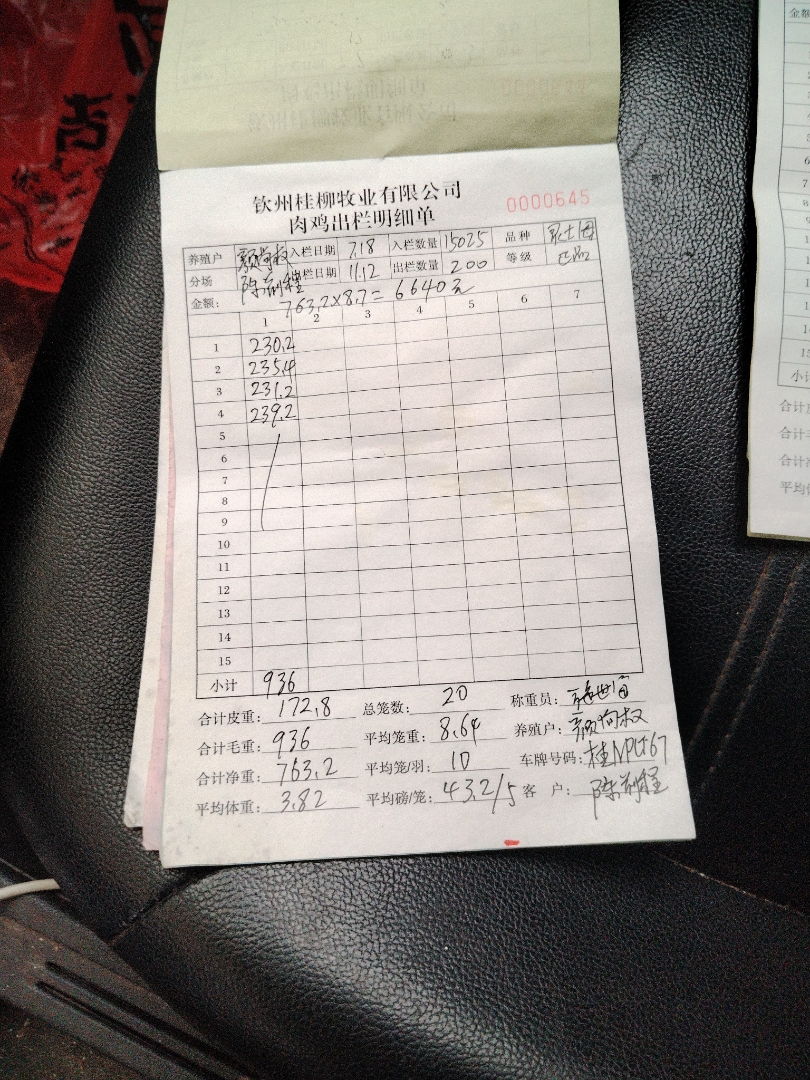 钦州桂柳牧业有限公司
肉鸡出栏明细单
0000645
养殖户 入栏日期 7.18 入栏数量 15025 品种
分场 陈前程 出栏日期 11.12 出栏数量 200 等级
金额: 763.2×8.7=6640元
1 2 3 4 5 6 7
1 230.2
2 235.4
3 231.2
4 239.2
5
6
7
8
9
10
11
12
13
14
15
小计 936
合计皮重: 172.8 总笼数: 20 称重员:
合计毛重: 936 平均笼重: 8.64 养殖户:
合计净重: 763.2 平均笼/羽: 10 车牌号码:
平均体重: 3.82 平均磅/笼: 43.2/5 客 户: 陈前程